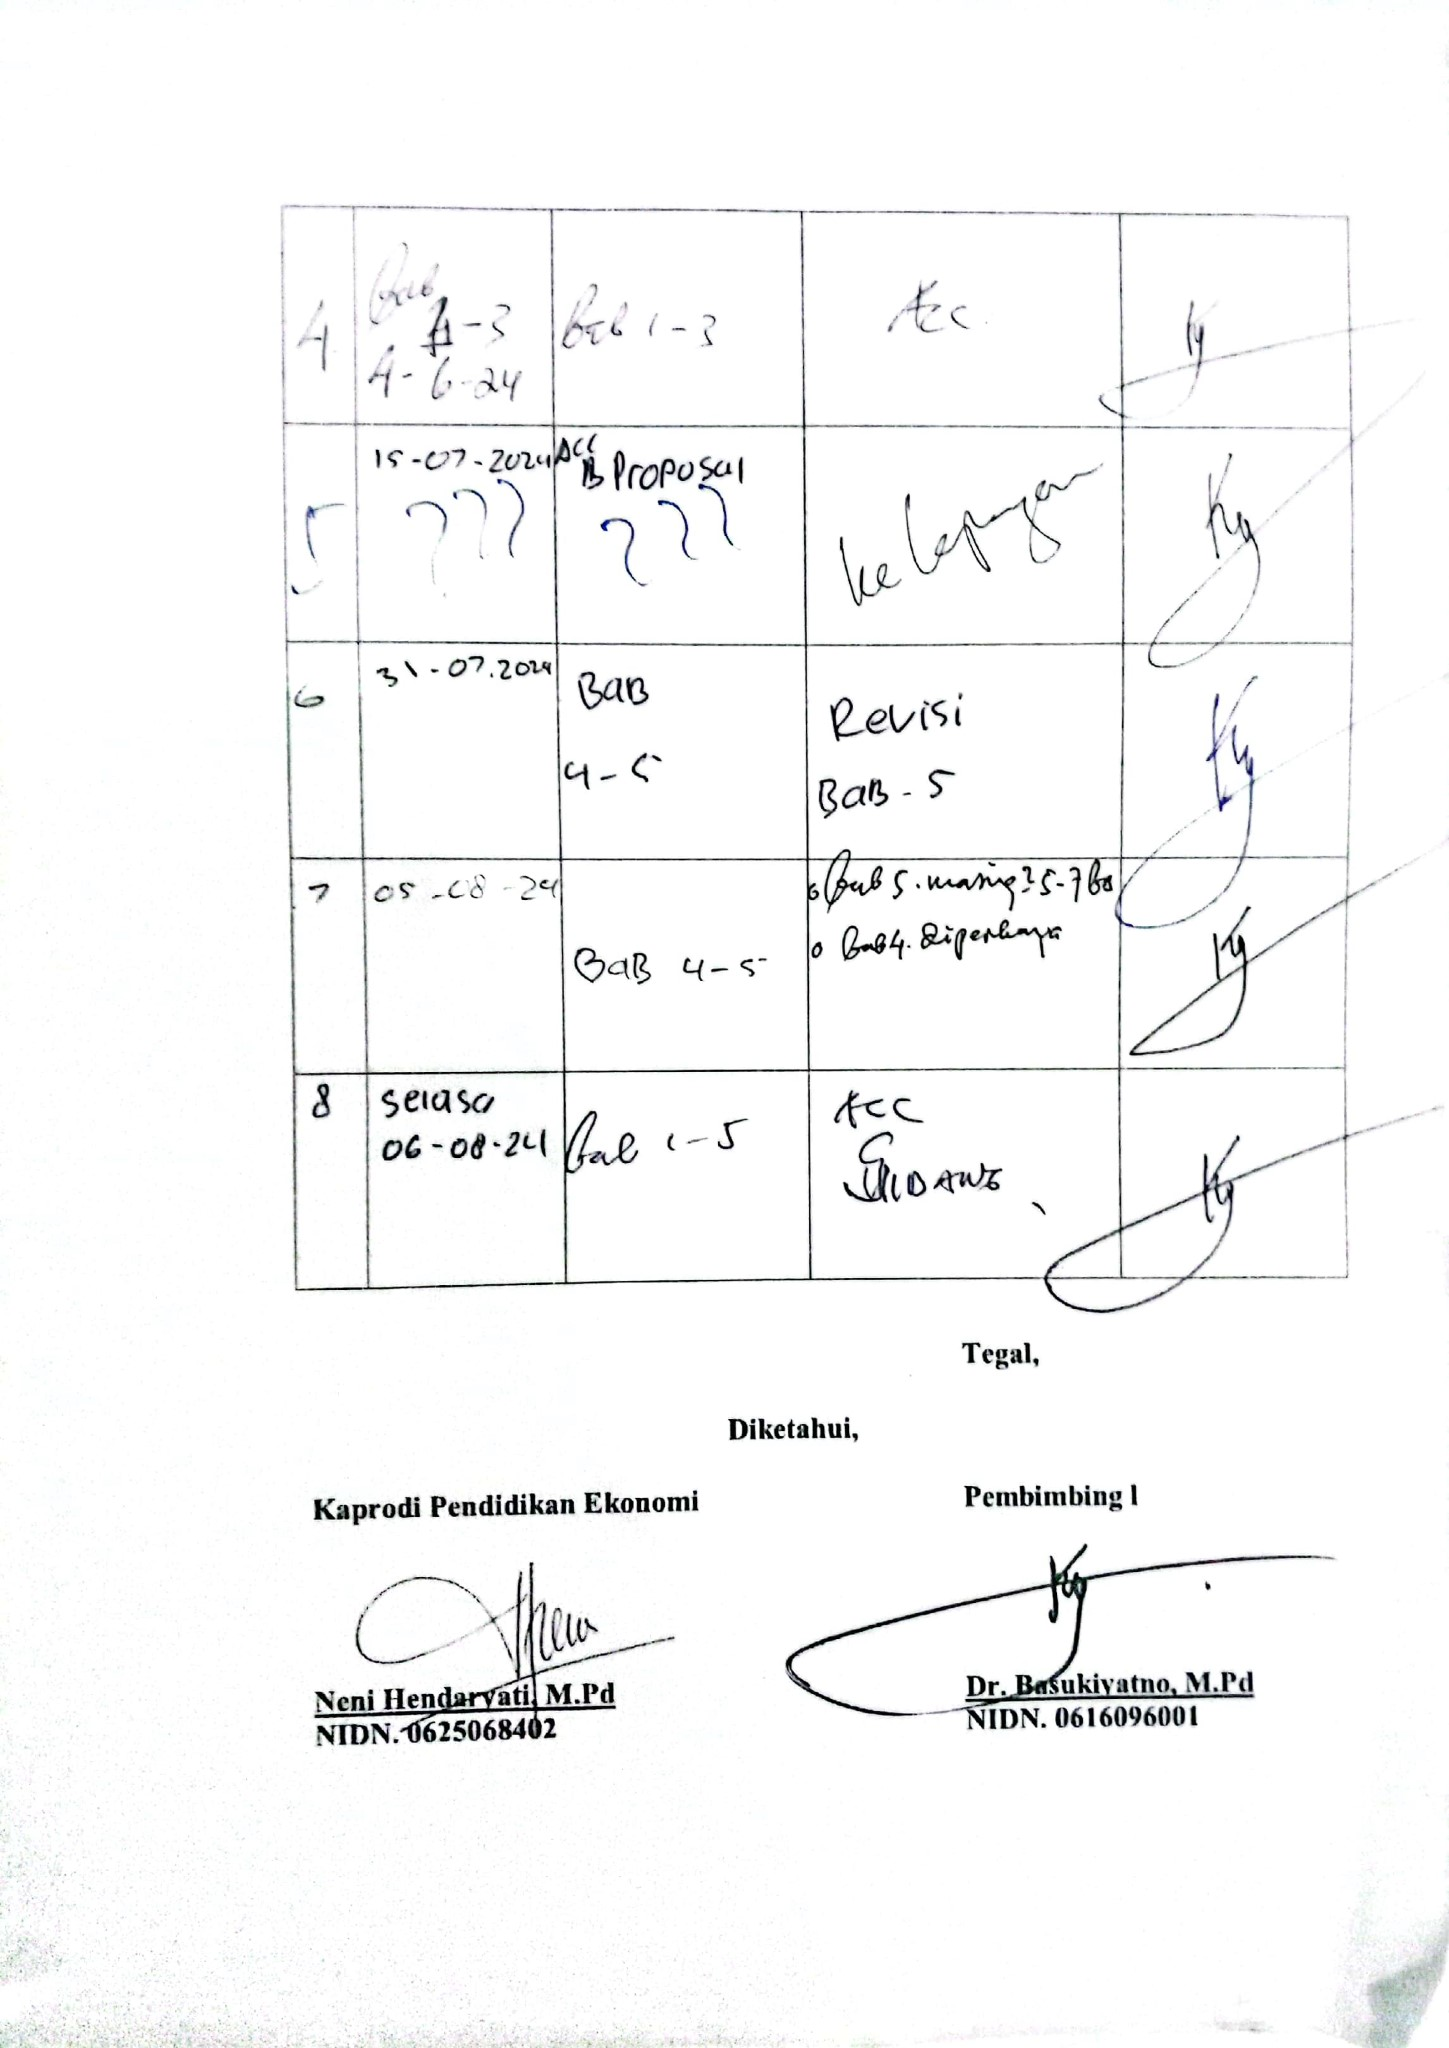 4
Bab
1-3
4-6-24
Bab 1-3
Acc.
5
15-07-2024
???
Acc
Proposal
???
ke lapangan
6
31-07.2024
BaB
4-5
Revisi
BaB-5
7
05-08-24
BaB 4-5
o Bab 5. masing2 5-7
o Bab 4. diperkaya
8
selasa
06-08-24
Bab 1-5
ACC
SIDANG
Tegal,
Diketahui,
Kaprodi Pendidikan Ekonomi
Pembimbing 1
Neni Hendaryati, M.Pd
NIDN. 0625068402
Dr. Basukiyatno, M.Pd
NIDN. 0616096001